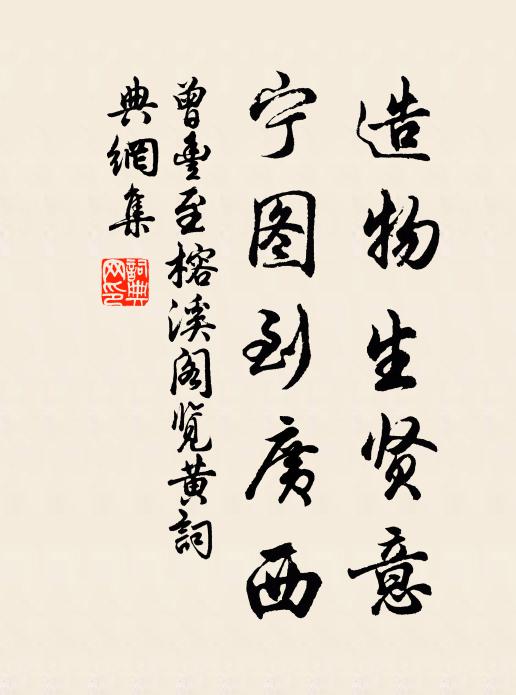 造物生贤意
宁图到廣西
曾豊至榕溪阁览黄詞
典網集
詞典网印